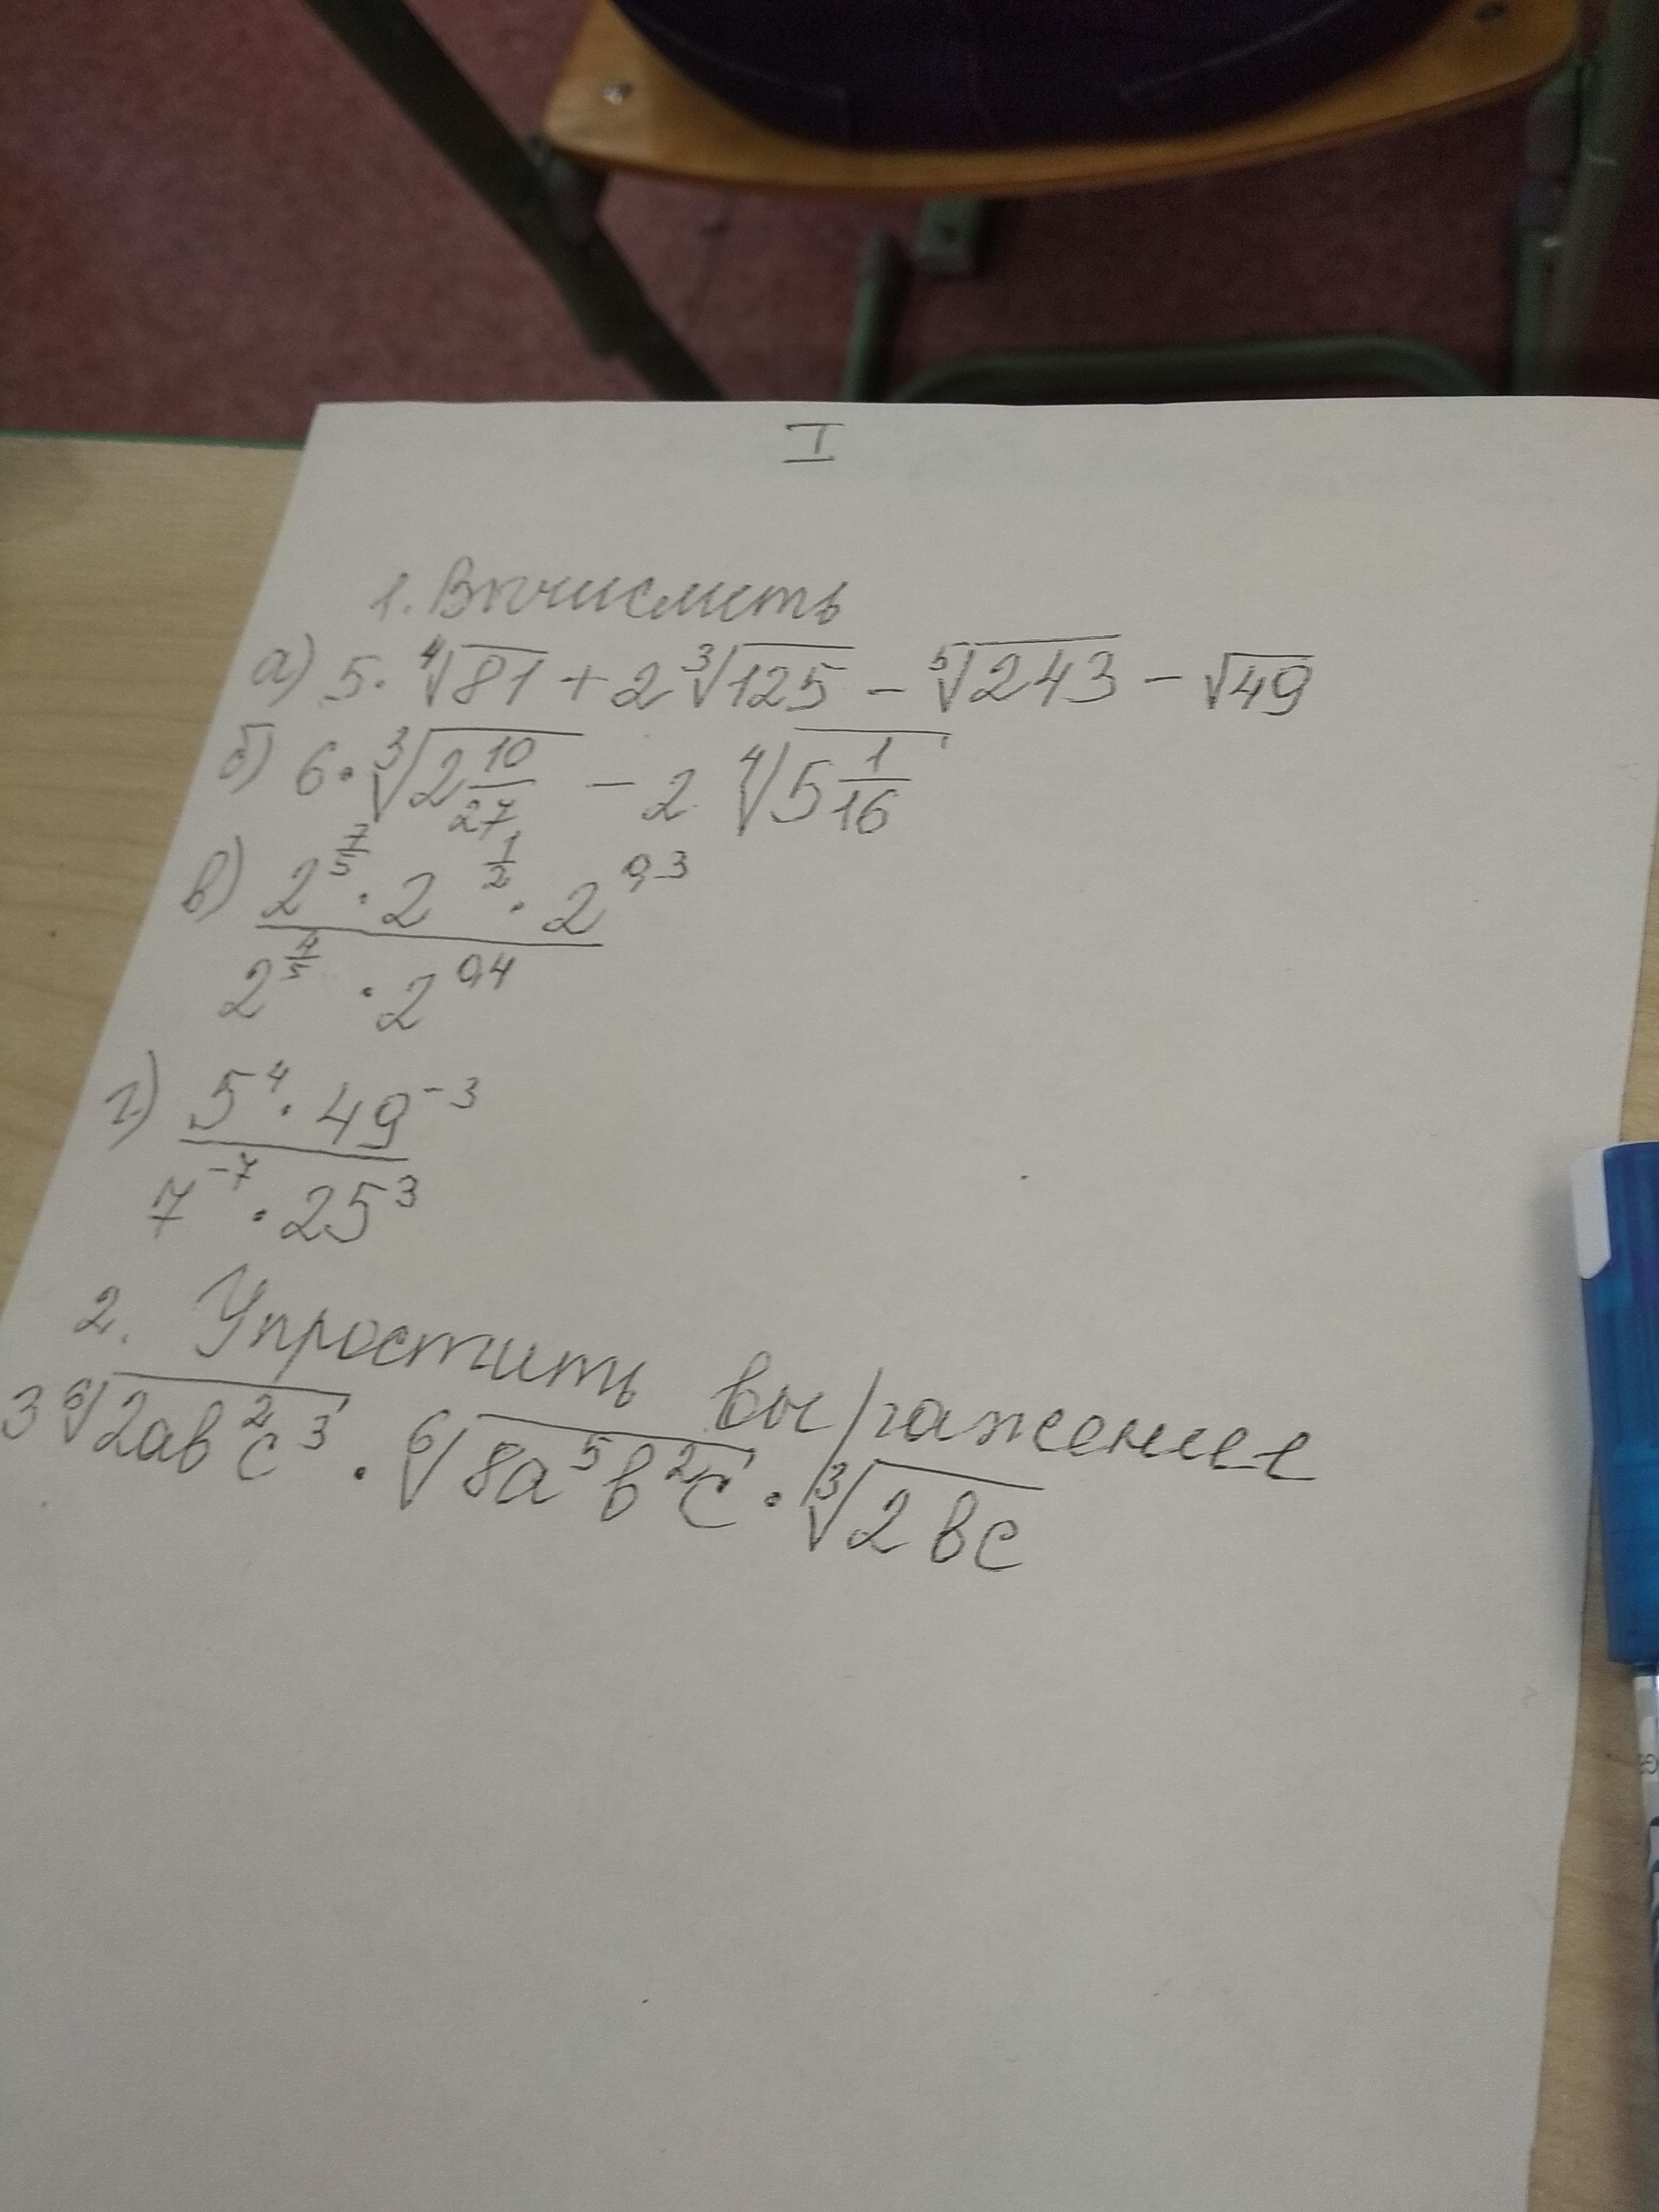 I
1. Вычислить
а) 5·⁴√81 + 2³√125 − ⁵√243 − √49
б) 6·³√(2 10/27) − 2 ⁴√(5 1/16)
в) (2^(7/5) · 2^(1/2) · 2^0,3) / (2^(4/5) · 2^0,4)
г) (5⁴ · 49⁻³) / (7⁻⁷ · 25³)
2. Упростить выражение
3⁶√(2ab²c³) · ⁶√(8a⁵b²c) · ³√(2bc)